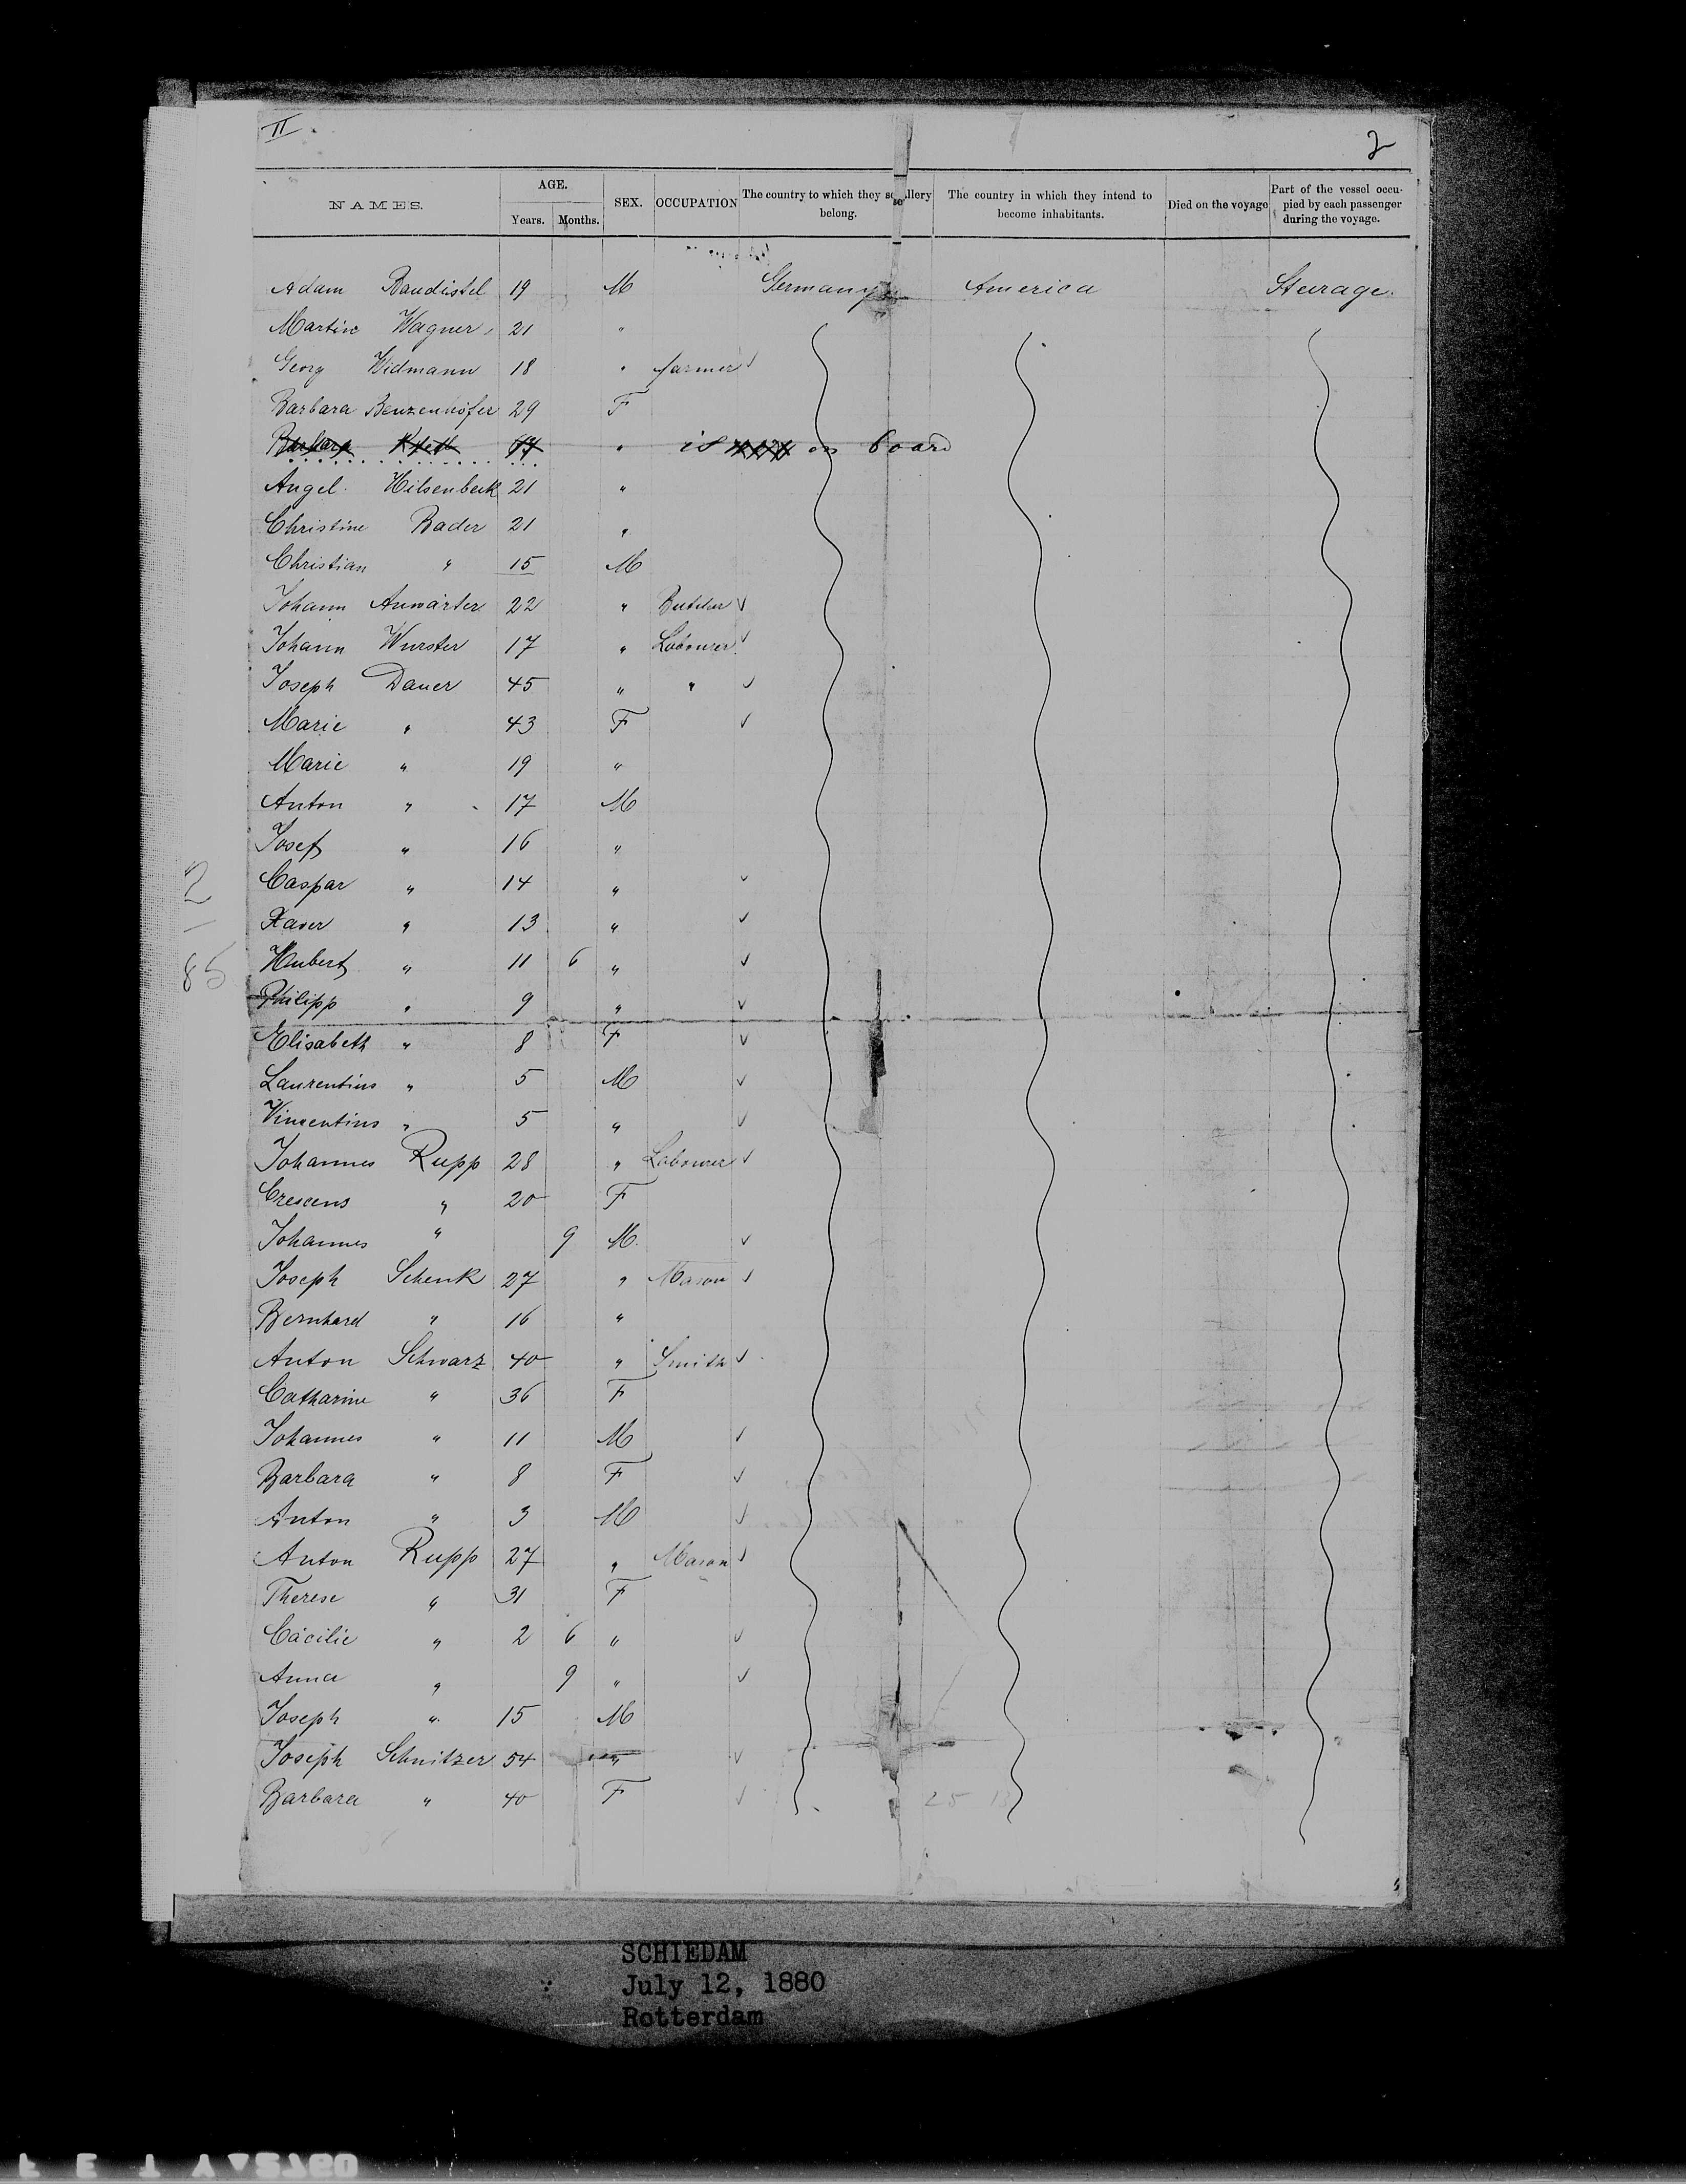 II
2
NAMES. AGE. Years. Months. SEX. OCCUPATION The country to which they severally belong. The country in which they intend to become inhabitants. Died on the voyage Part of the vessel occupied by each passenger during the voyage.
Adam Baudistel 19 M Germany America Steerage.
Martin Wagner 21 "
Georg Widmann 18 " farmer ✓
Barbara Benzenhöfer 29 F
Barbara " is on board
Angel. Hilsenbeck 21 "
Christine Bader 21 "
Christian " 15 M
Johann Anwärter 22 " Butcher ✓
Johann Wurster 17 " Labourer ✓
Joseph Dauer 45 " " ✓
Marie " 43 F ✓
Marie " 19 "
Anton " 17 M
Josef " 16 "
Caspar " 14 " ✓
Xaver " 13 " ✓
Hubert " 11 6 " ✓
Philipp " 9 " ✓
Elisabeth " 8 F ✓
Laurentius " 5 M ✓
Vincentius " 5 " ✓
Johannes Rupp 28 " Labourer ✓
Crescens " 20 F
Johannes " 9 M. ✓
Joseph Schenk 27 " Mason ✓
Bernhard " 16 "
Anton Schwarz 40 " Smith ✓
Catharine " 36 F
Johannes " 11 M ✓
Barbara " 8 F ✓
Anton " 3 M ✓
Anton Rupp 27 " Mason ✓
Therese " 31 F
Cäcilie " 2 6 " ✓
Anna " 9 " ✓
Joseph " 15 M
Joseph Schnitzer 54 " ✓
Barbara " 40 F ✓
2
85
SCHIEDAM
July 12, 1880
Rotterdam